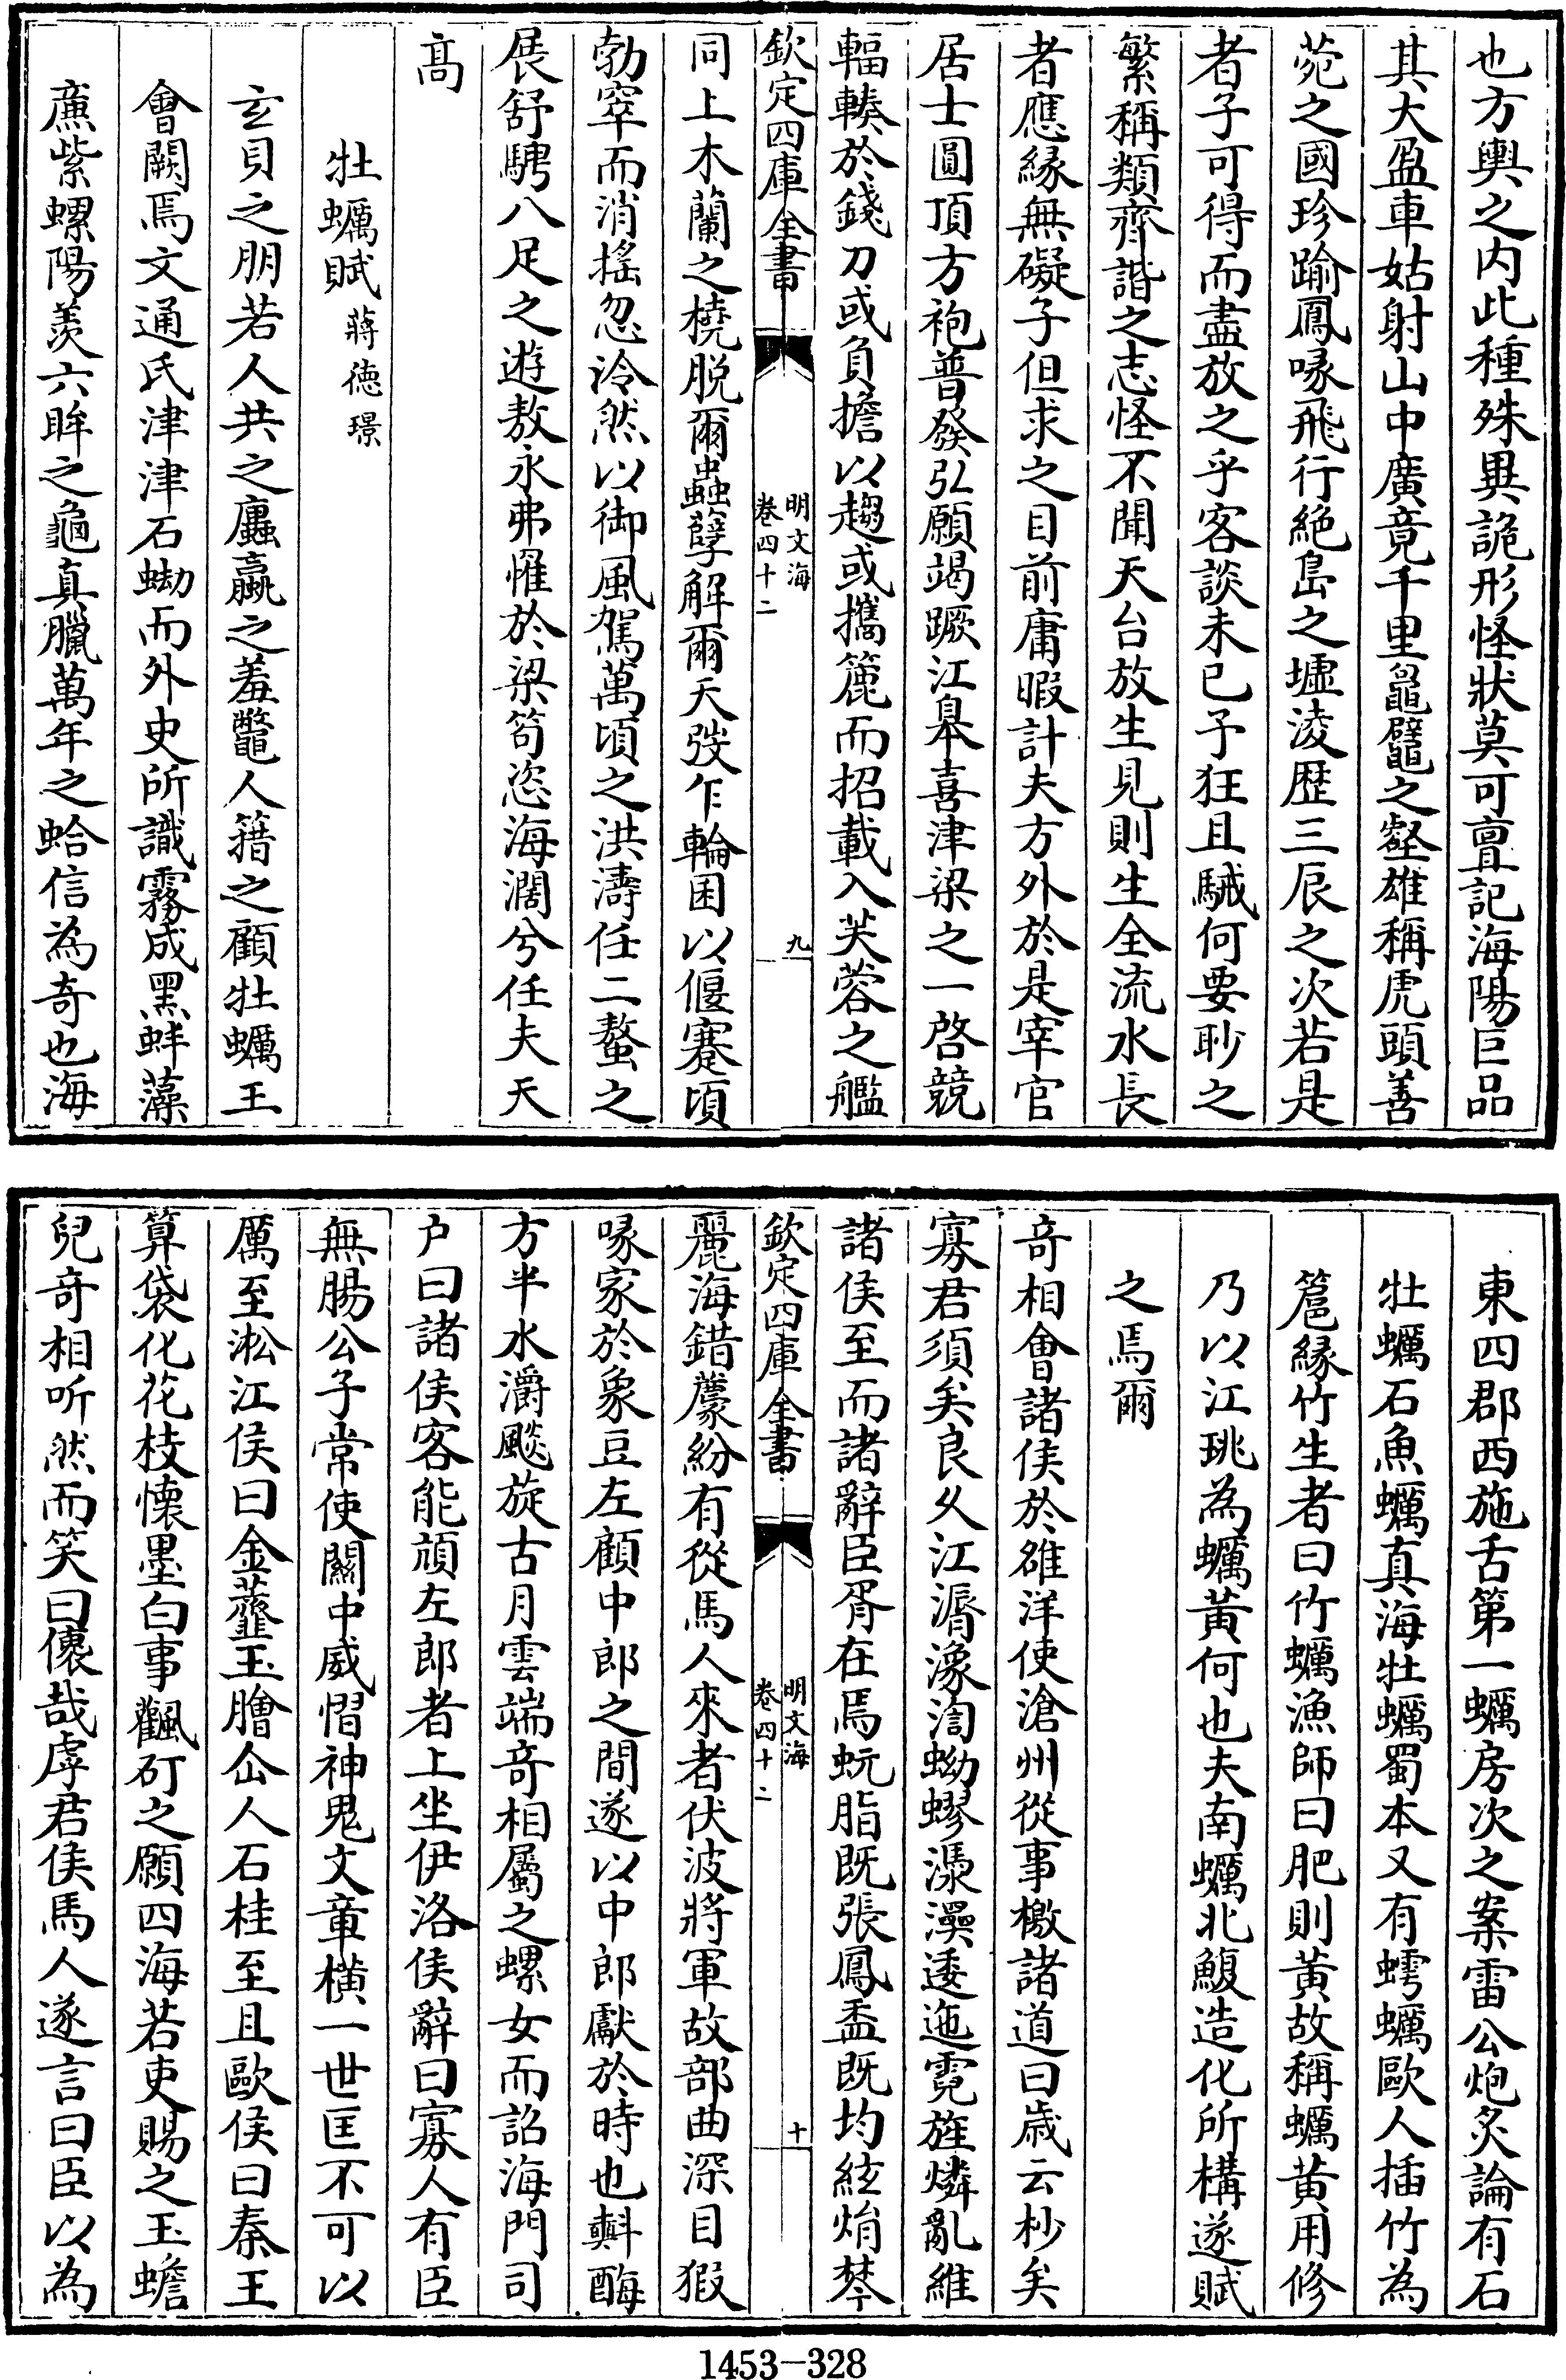 也方輿之内此種殊異詭形怪狀莫可亶記海陽巨品
其大盈車姑射山中廣竟千里黿鼊之壑雄稱虎頭善
菀之國珍踰鳳喙飛行絶島之墟淩歴三辰之次若是
者子可得而盡放之乎客談未已予狂且駴何要眇之
繁稱類齊諧之志怪不聞天台放生見則生全流水長
者應縁無礙子但求之目前庸暇計夫方外於是宰官
居士圓頂方袍普發弘願竭蹶江臯喜津梁之一啓競
輻輳於錢刀或負擔以趨或攜簏而招載入芙蓉之艦
欽定四庫全書
明文海
卷四十二
九
同上木蘭之橈脱爾蟲孽解爾天弢乍輪囷以偃蹇頃
勃窣而消摇忽泠然以御風駕萬頃之洪濤任二螯之
展舒騁八足之遊敖永弗罹於梁笱恣海濶兮任夫天
髙
牡蠣賦蔣德璟
玄貝之朋若人共之蠯蠃之羞鼈人籍之顧牡蠣王
會闕焉文通氏津津石蚴而外史所識霧成黑蚌藻
廌紫螺陽羡六眸之龜真臘萬年之蛤信為奇也海
東四郡西施舌第一蠣房次之案雷公炮炙論有石
牡蠣石魚蠣真海牡蠣蜀本又有蠄蠣歐人插竹為
篕縁竹生者曰竹蠣漁師曰肥則黄故稱蠣黄用修
乃以江珧為蠣黄何也夫南蠣北鰒造化所構遂賦
之焉爾
奇相會諸侯於碓洋使滄州從事檄諸道曰歳云杪矣
寡君須矣良夂江漘濠渹蚴蟉瀑澡逶迤霓旌燐亂維
諸侯至而諸辭臣胥在焉蚖脂既張鳳盉既均絃焇棽
欽定四庫全書
明文海
卷四十二
十
麗海錯藘紛有從馬人來者伏波將軍故部曲深目猳
喙家於象豆左顧中郎之間遂以中郎獻於時也斞酶
方半水灂颷旋古月雲端奇相屬之螺女而詔海門司
户曰諸侯客能頏左郎者上坐伊洛侯辭曰寡人有臣
無腸公子常使關中威慴神鬼文章横一世匡不可以
厲至淞江侯曰金虀玉膾仚人石桂至且歐侯曰秦王
算袋化花枝懐墨白事颿矴之願四海若吏賜之玉蟾
兒奇相听然而笑曰儇哉虖君侯馬人遂言曰臣以為
1453—328